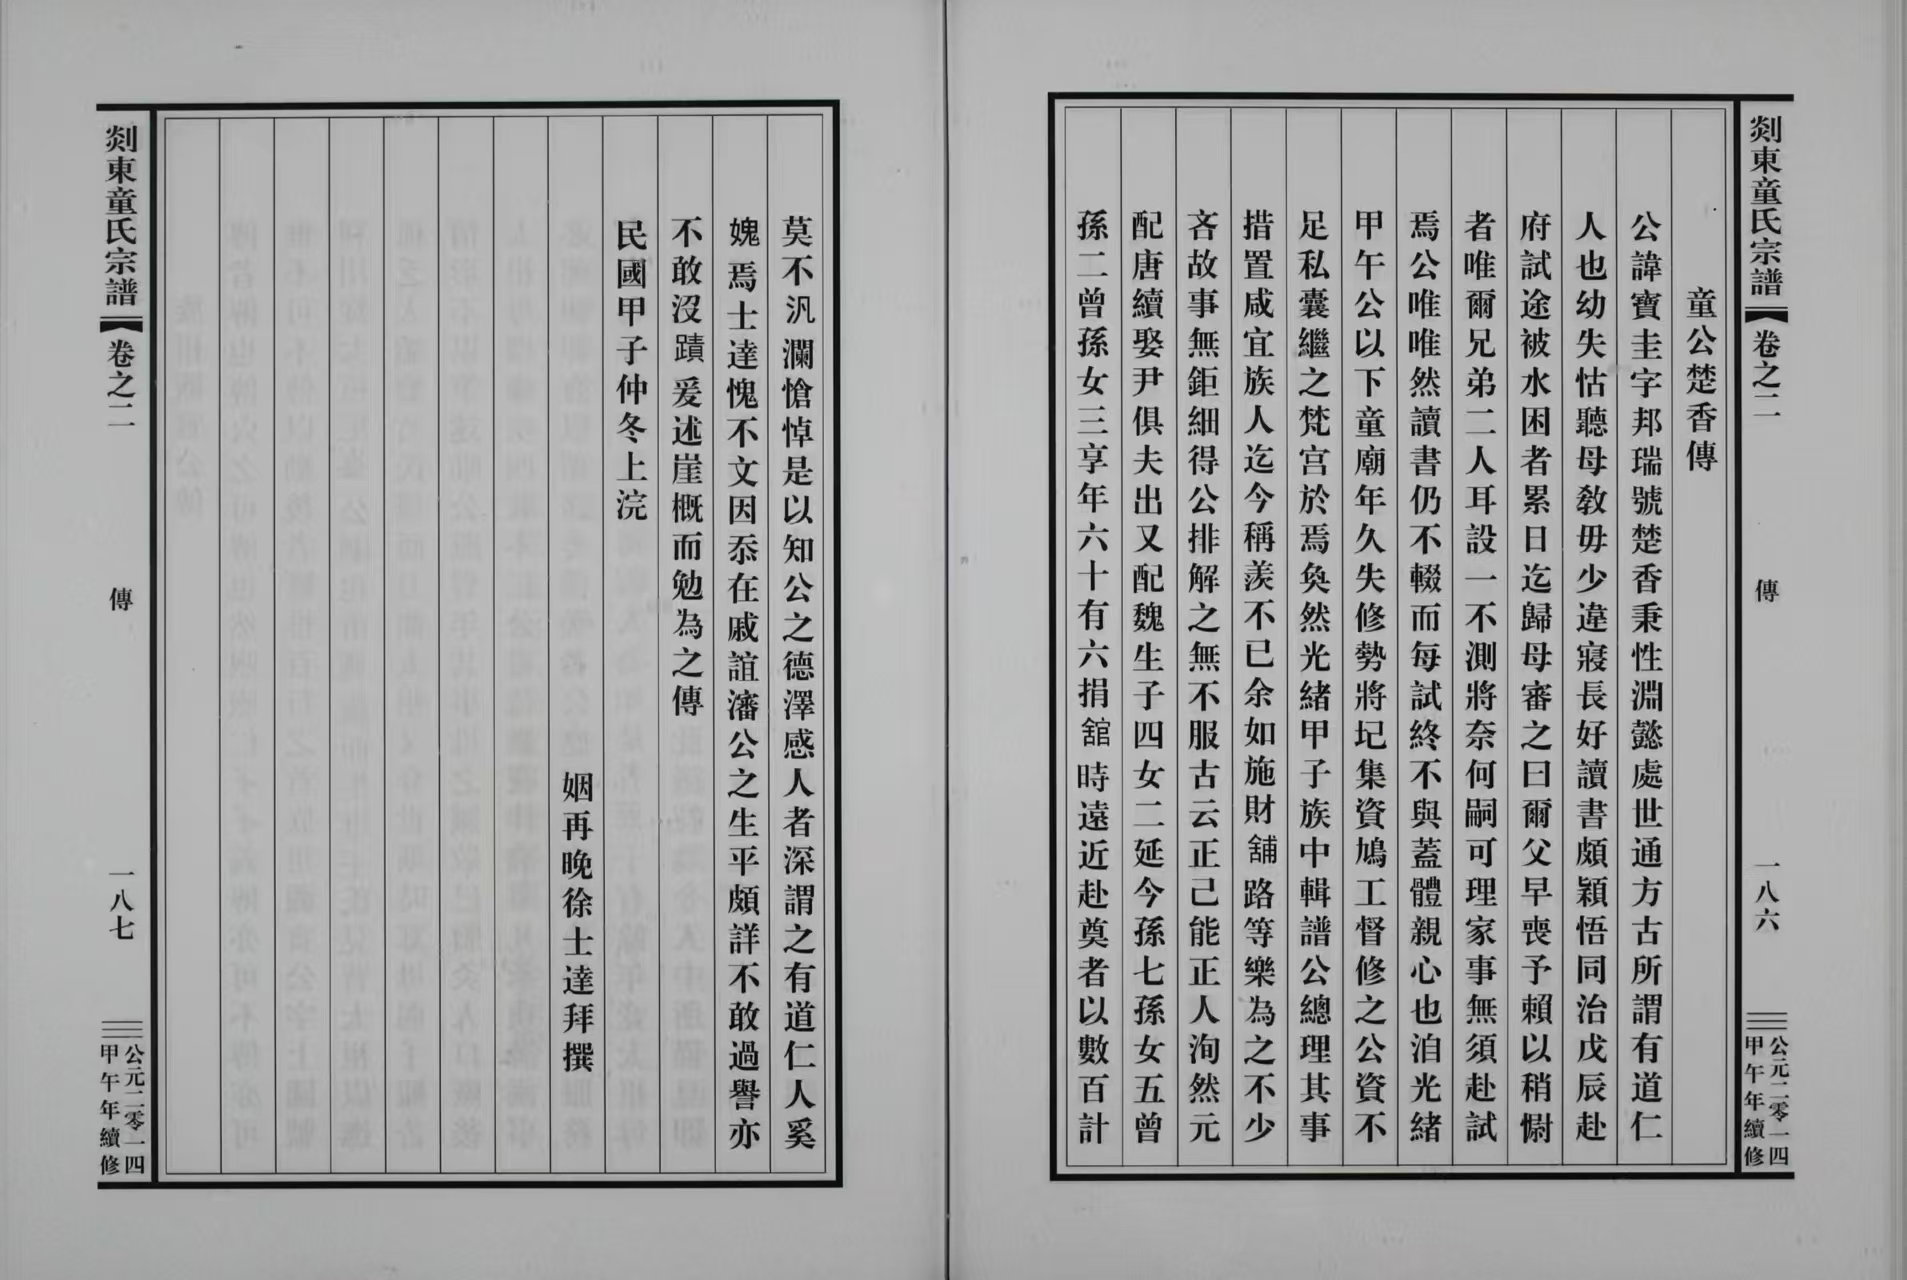 剡東童氏宗譜
卷之二
傳
一八六
公元二零一四
甲午年續修
童公楚香傳
公諱寶圭字邦瑞號楚香秉性淵懿處世通方古所謂有道仁
人也幼失怙聽母教毋少違寢長好讀書頗穎悟同治戊辰赴
府試途被水困者累日迄歸母審之曰爾父早喪予賴以稍慰
者唯爾兄弟二人耳設一不測將奈何嗣可理家事無須赴試
焉公唯唯然讀書仍不輟而每試終不與蓋體親心也洎光緒
甲午公以下童廟年久失修勢將圮集資鳩工督修之公資不
足私囊繼之梵宫於焉奐然光緒甲子族中輯譜公總理其事
措置咸宜族人迄今稱羨不已余如施財舖路等樂為之不少
吝故事無鉅細得公排解之無不服古云正己能正人洵然元
配唐續娶尹俱夫出又配魏生子四女二延今孫七孫女五曾
孫二曾孫女三享年六十有六捐舘時遠近赴奠者以數百計
莫不汎瀾愴悼是以知公之德澤感人者深謂之有道仁人奚
媿焉士達愧不文因忝在戚誼瀋公之生平頗詳不敢過譽亦
不敢沒蹟爰述崖概而勉為之傳
民國甲子仲冬上浣
姻再晚徐士達拜撰
剡東童氏宗譜
卷之二
傳
一八七
公元二零一四
甲午年續修